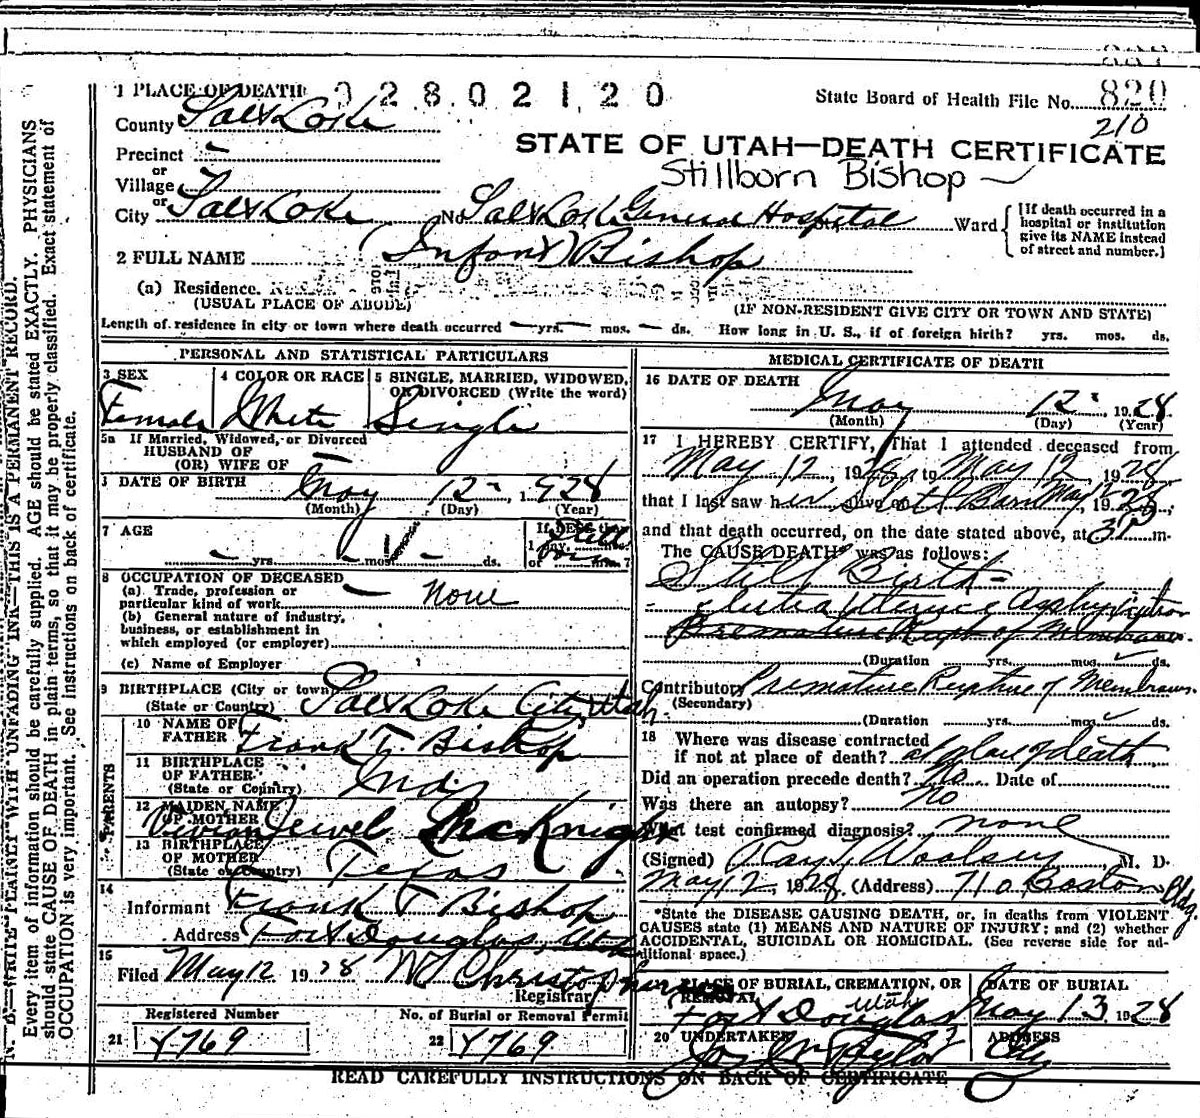 1 PLACE OF DEATH 02802120
State Board of Health File No. 820
County Salt Lake
210
STATE OF UTAH—DEATH CERTIFICATE
Precinct —
or
Village —
Stillborn Bishop
or
City Salt Lake No. Salt Lake General Hospital Ward
[If death occurred in a hospital or institution give its NAME instead of street and number.]
2 FULL NAME (Infant) Bishop
(a) Residence.
(USUAL PLACE OF ABODE) (IF NON-RESIDENT GIVE CITY OR TOWN AND STATE)
Length of residence in city or town where death occurred — yrs. — mos. — ds. How long in U. S., if of foreign birth? yrs. mos. ds.
N. B.—WRITE PLAINLY WITH UNFADING INK—THIS IS A PERMANENT RECORD.
Every item of information should be carefully supplied. AGE should be stated EXACTLY. PHYSICIANS
should state CAUSE OF DEATH in plain terms, so that it may be properly classified. Exact statement of
OCCUPATION is very important. See Instructions on back of certificate.
PERSONAL AND STATISTICAL PARTICULARS
3 SEX Female
4 COLOR OR RACE White
5 SINGLE, MARRIED, WIDOWED, OR DIVORCED (Write the word) Single
5a If Married, Widowed, or Divorced
HUSBAND OF
(OR) WIFE OF —
DATE OF BIRTH May 12 1928
(Month) (Day) (Year)
7 AGE — yrs. — mos. — ds.
If LESS than 1 day
Still born
8 OCCUPATION OF DECEASED
(a) Trade, profession or
particular kind of work — None
(b) General nature of industry,
business, or establishment in
which employed (or employer)
(c) Name of Employer
9 BIRTHPLACE (City or town)
(State or Country) Salt Lake City Utah
PARENTS
10 NAME OF FATHER Frank T. Bishop
11 BIRTHPLACE OF FATHER
(State or Country) Ind
12 MAIDEN NAME OF MOTHER Vivian Jewel McKnight
13 BIRTHPLACE OF MOTHER
(State or Country) Texas
14 Informant Frank T Bishop
Address Fort Douglas, Utah
15 Filed May 12 1928
Registrar
Registered Number
21 Y769
No. of Burial or Removal Permit
22 Y769
MEDICAL CERTIFICATE OF DEATH
16 DATE OF DEATH
May 12 1928
(Month) (Day) (Year)
17 I HEREBY CERTIFY, That I attended deceased from
May 12, 1928, to May 12, 1928
that I last saw her alive on Still Born May 12 1928,
and that death occurred, on the date stated above, at 3 P m.
The CAUSE DEATH* was as follows:
Still Birth
Intra uterine Asphyxiation
Premature Rupt of Membranes
(Duration yrs. mos. ds.
Contributory Premature Rupture of Membranes
(Secondary)
(Duration yrs. mos. ds.
18 Where was disease contracted
if not at place of death? at place of death
Did an operation precede death? no Date of
Was there an autopsy? no
What test confirmed diagnosis? none
(Signed) Ray T Woolsey, M. D.
May 12, 1928 (Address) 710 Boston Bldg
*State the DISEASE CAUSING DEATH, or, in deaths from VIOLENT
CAUSES state (1) MEANS AND NATURE OF INJURY; and (2) whether
ACCIDENTAL, SUICIDAL OR HOMICIDAL. (See reverse side for additional space.)
PLACE OF BURIAL, CREMATION, OR REMOVAL
Fort Douglas Utah
DATE OF BURIAL
May 13 1928
20 UNDERTAKER Jos Wm Taylor
ADDRESS City
READ CAREFULLY INSTRUCTIONS ON BACK OF CERTIFICATE